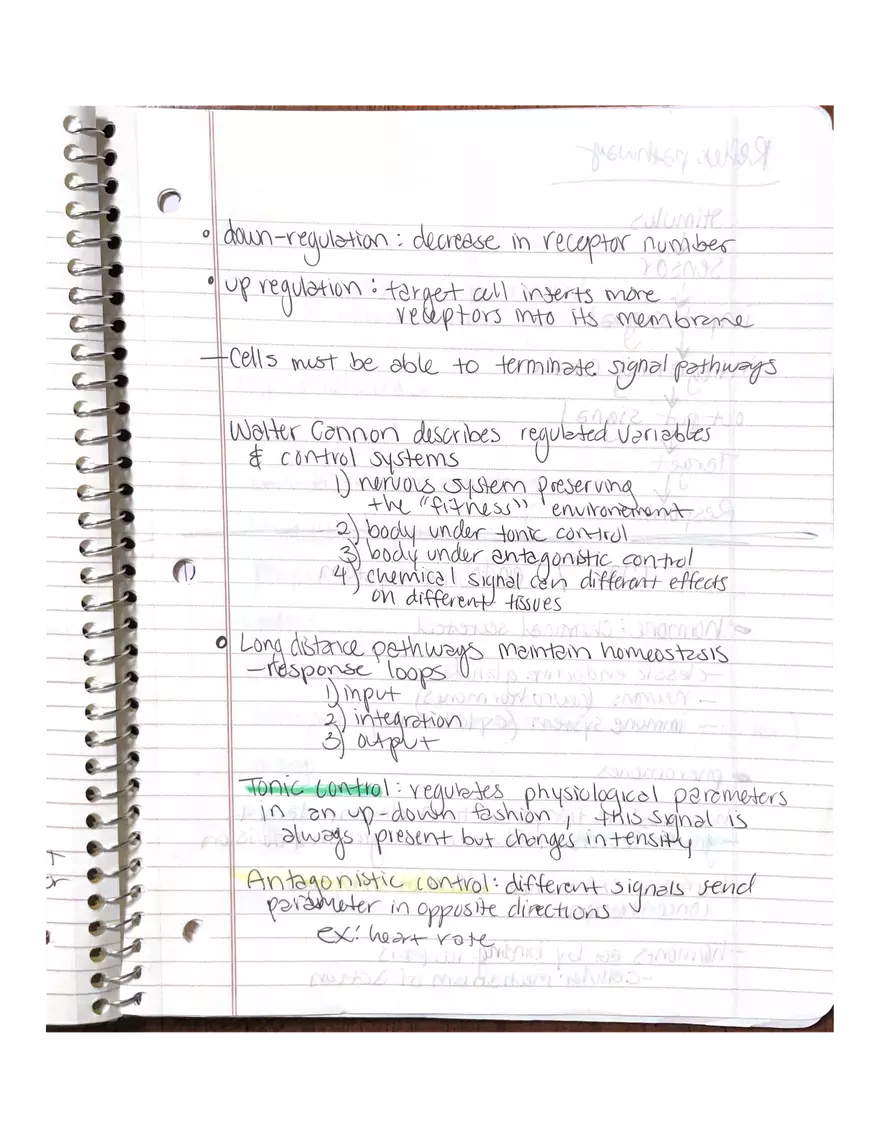 • down-regulation : decrease in receptor number
• up regulation : target cell inserts more
receptors into its membrane
—Cells must be able to terminate signal pathways
Walter Cannon describes regulated variables
& control systems
1) nervous system preserving
the "fitness" environement
2) body under tonic control
3) body under antagonistic control
4) chemical signal can different effects
on different tissues
• Long distance pathways maintain homeostasis
—response loops
1) input
2) integration
3) output
Tonic control : regulates physiological parameters
in an up-down fashion, this signal is
always present but changes intensity
Antagonistic control: different signals send
parameter in opposite directions
ex: heart rate